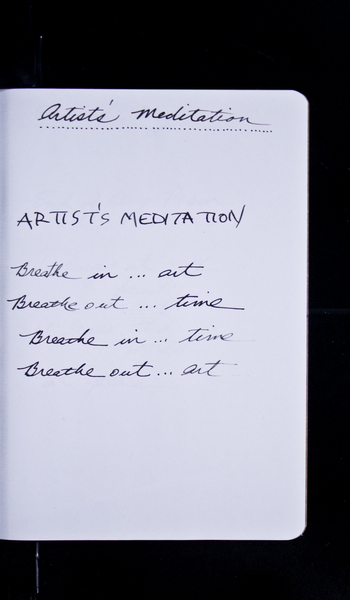 Artists' Meditation
ARTIST'S MEDITATION
Breathe in ... art
Breathe out ... time
Breathe in ... time
Breathe out ... art